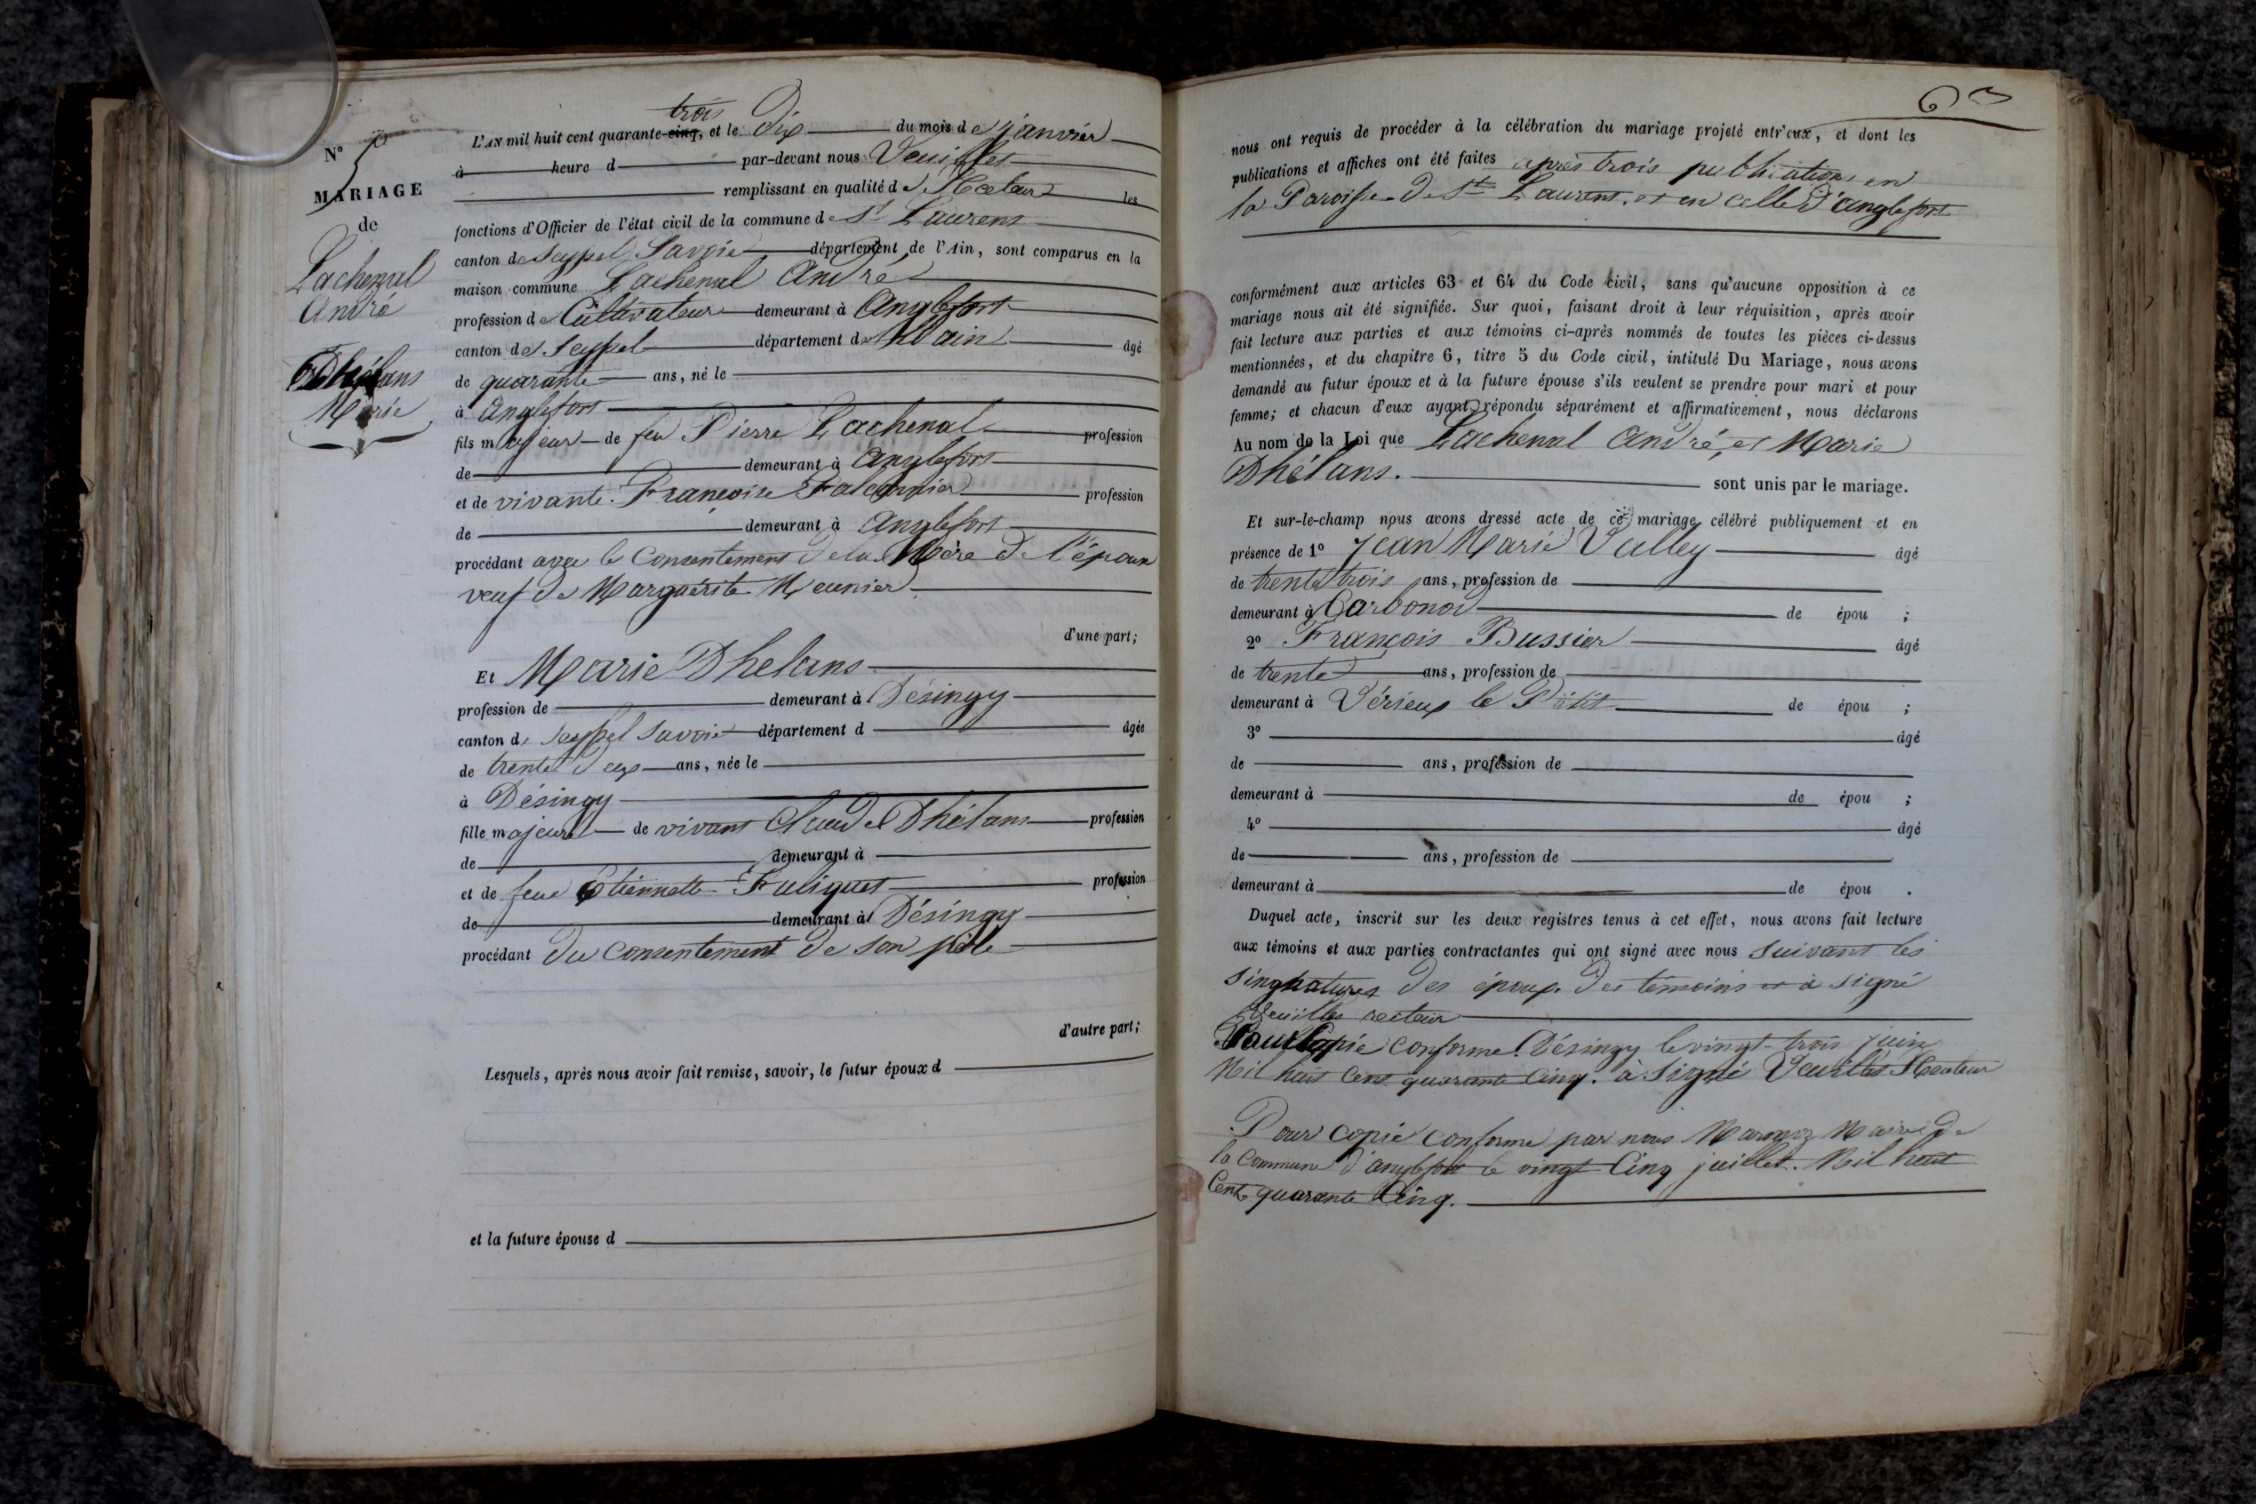 N° 5
MARIAGE
de
Lachenal
André
Dhélans
Marie
trois
L'AN mil huit cent quarante-cinq, et le Dix du mois de janvier
à heure d par-devant nous Veuillet
remplissant en qualité de Recteur les
fonctions d'Officier de l'état civil de la commune de St Laurent
canton de Seyssel Savoie département de l'Ain, sont comparus en la
maison commune Lachenal André
profession de Cultivateur demeurant à Anglefort
canton de Seyssel département de l'ain âgé
de quarante ans, né le
à Anglefort
fils majeur de feu Pierre Lachenal profession
de demeurant à Anglefort
et de vivante Françoise Falconnier profession
de demeurant à Anglefort
procédant avec le Consentement de la Mère de l'époux
veuf de Marguérite Meunier
d'une part;
Et Marie Dhelans
profession de demeurant à Désingy
canton de Seyssel Savoie département d âgée
de trente deux ans, née le
à Désingy
fille majeure de vivant Claude Dhélans profession
de demeurant à
et de feue Etiennette Fuliquet profession
de demeurant à Désingy
procédant du consentement de son père
d'autre part;
Lesquels, après nous avoir fait remise, savoir, le futur époux d
et la future épouse d
63
nous ont requis de procéder à la célébration du mariage projeté entr'eux, et dont les
publications et affiches ont été faites après trois publications en
la Paroisse de St Laurent, et en celle d'anglefort
conformément aux articles 63 et 64 du Code civil, sans qu'aucune opposition à ce
mariage nous ait été signifiée. Sur quoi, faisant droit à leur réquisition, après avoir
fait lecture aux parties et aux témoins ci-après nommés de toutes les pièces ci-dessus
mentionnées, et du chapitre 6, titre 5 du Code civil, intitulé Du Mariage, nous avons
demandé au futur époux et à la future épouse s'ils veulent se prendre pour mari et pour
femme; et chacun d'eux ayant répondu séparément et affirmativement, nous déclarons
Au nom de la Loi que Lachenal André, et Marie
Dhélans. sont unis par le mariage.
Et sur-le-champ nous avons dressé acte de ce mariage célébré publiquement et en
présence de 1° Jean Marie Vulley âgé
de trente trois ans, profession de
demeurant à Carbonod de épou ;
2° François Bussier âgé
de trente ans, profession de
demeurant à Vérieux le Petit de épou ;
3° âgé
de ans, profession de
demeurant à de épou ;
4° âgé
de ans, profession de
demeurant à de épou .
Duquel acte, inscrit sur les deux registres tenus à cet effet, nous avons fait lecture
aux témoins et aux parties contractantes qui ont signé avec nous suivant les
singnatures des époux. des témoins et à signé
Veuillet recteur
Pour Copie Conforme. Désingy le vingt-trois juin
Mil huit Cent quarante Cinq. à signé Veuillet Recteur
Pour copie conforme par nous Maire de
la Commune d'anglefort le vingt Cinq juillet. Mil huit
Cent quarante Cinq.